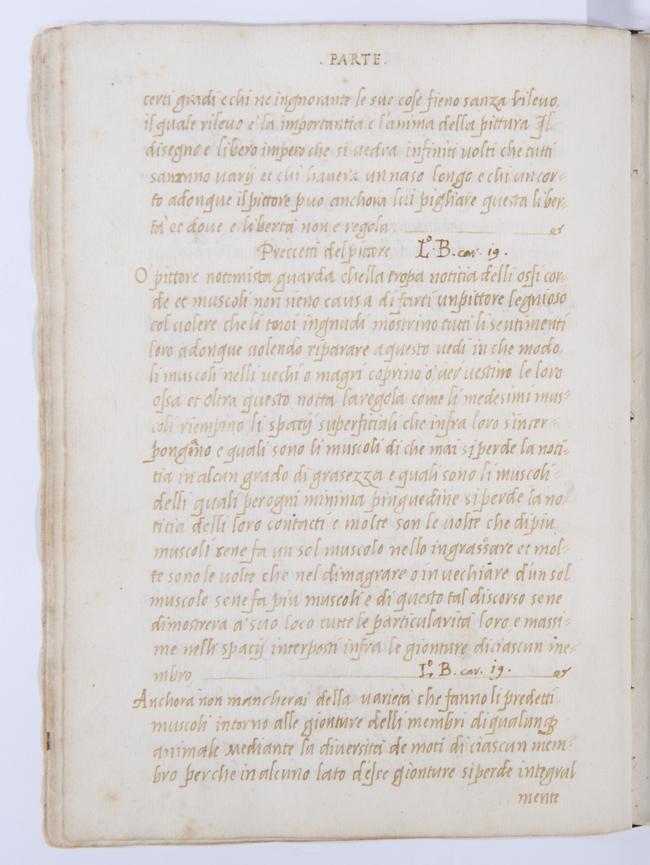 . PARTE .
certi gradi e chi ne ingnorante le sue cose fieno sanza rilevo,
il quale rilevo e la importantia e l'anima della pittura Il
disegno e libero impero che si vedra infiniti volti che tutti
saranno varij et chi havera un naso longo e chi un cor-
to adonque il pittore puo anchora lui pigliare questa liber-
ta et dove e liberta non e regola.
Precetti del pittore L.º B. car. 19.
O pittore notomista guarda chella tropa notitia delli ossi cor-
de et muscoli non sieno causa di farti un pittore legnioso
col volere che li tuoi ingnudi mostrino tutti li sentimenti
loro adonque volendo riparare a questo vedi in che modo,
li muscoli nelli vechi o magri coprino o ver vestino le loro
ossa et oltra questo notta la regola come li medesimi mus-
coli riempino li spatij superfitiali che infra loro s'inter-
pongano e quali sono li muscoli di che mai si perde la noti-
tia in alcun grado di grasezza e quali sono li muscoli
delli quali per ogni minima pinguedine si perde la no-
titia delli loro contacti e molte son le volte che di piu
muscoli sene fa un sol muscolo nello ingrassare et mol-
te sono le volte che nel dimagrare o in vechiare d'un sol
muscolo sene fa piu muscoli e di questo tal discorso sene
dimostrera a suo loco tutte le particularita loro e massi-
me nelli spatij interposti infra le gionture di ciascun me-
mbro L.º B. car. 19.
Anchora non mancherai della varieta che fanno li predetti
muscoli intorno alle gionture delli membri di qualunq
animale mediante la diversita de moti di ciascun mem-
bro perche in alcuno lato d'esse gionture si perde integral
mente